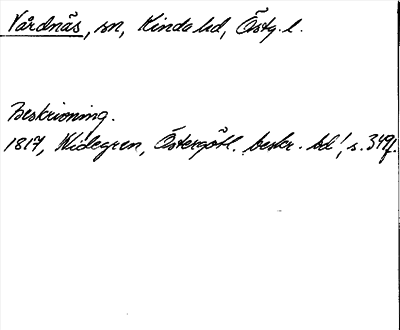 Vårdnäs, sn, Kinda hd, Östg. l.
Beskrivning.
1817, Widegren, Östergötl. beskr. bd 1, s. 349f.